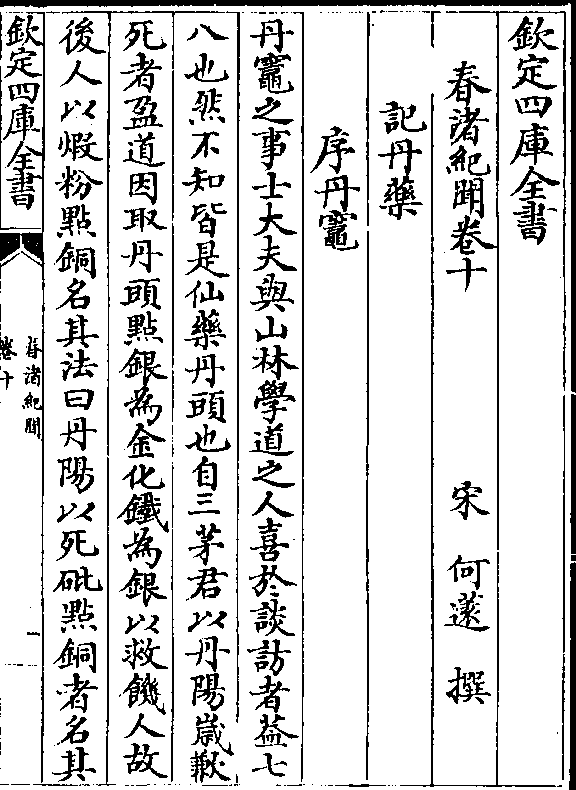 欽定四庫全書
春渚紀聞卷十
宋 何薳 撰
記丹藥
序丹竈
丹竈之事士大夫與山林學道之人喜於談訪者葢七
八也然不知皆是仙藥丹頭也自三茅君以丹陽嵗歉
死者盈道因取丹頭點銀為金化鐵為銀以救饑人故
後人以煆粉點銅名其法曰丹陽以死砒點銅者名其
欽定四庫全書
春渚紀聞
卷十
一